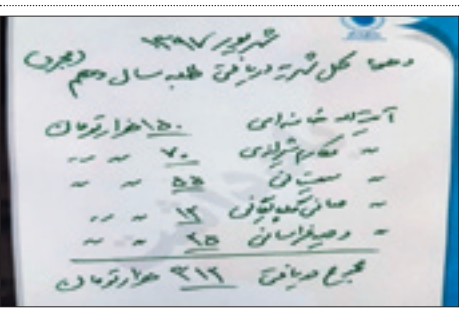 شهریور ۱۳۹۷
کل شهریه دریافتی طلبه سال دهم (مجرد)
آیت الله خامنه‌ای ۱۵۰ هزار تومان
〃 مکارم شیرازی ۷۰ 〃 〃
〃 سیستانی ۵۵ 〃 〃
〃 صافی گلپایگانی ۱۲ 〃 〃
〃 وحید خراسانی ۲۵ 〃 〃
مجموع دریافتی ۳۱۲ هزار تومان